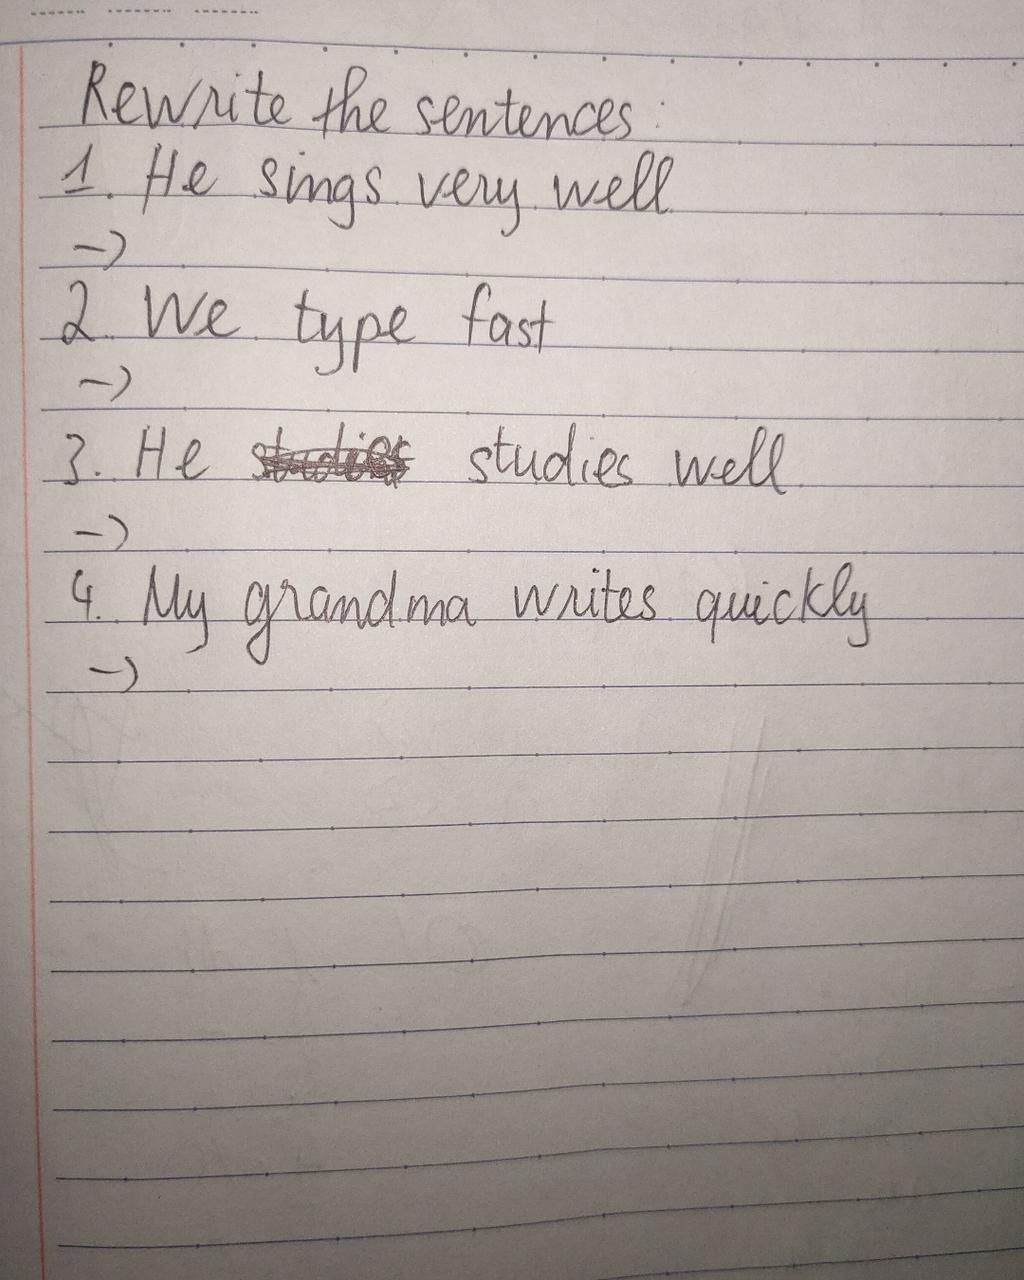 Rewrite the sentences:
1. He sings very well
->
2. We type fast
->
3. He studies well
->
4. My grandma writes quickly
->